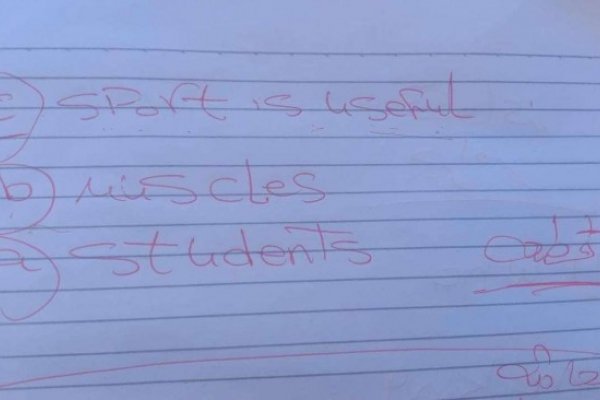 c) sport is useful
b) muscles
a) students